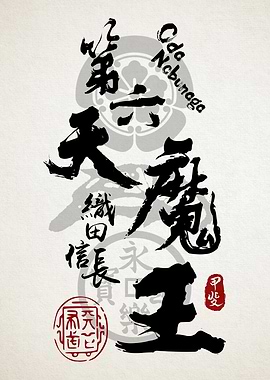 第六天魔王
Oda
Nobunaga
織田信長
永樂
寶
甲斐
天下布武